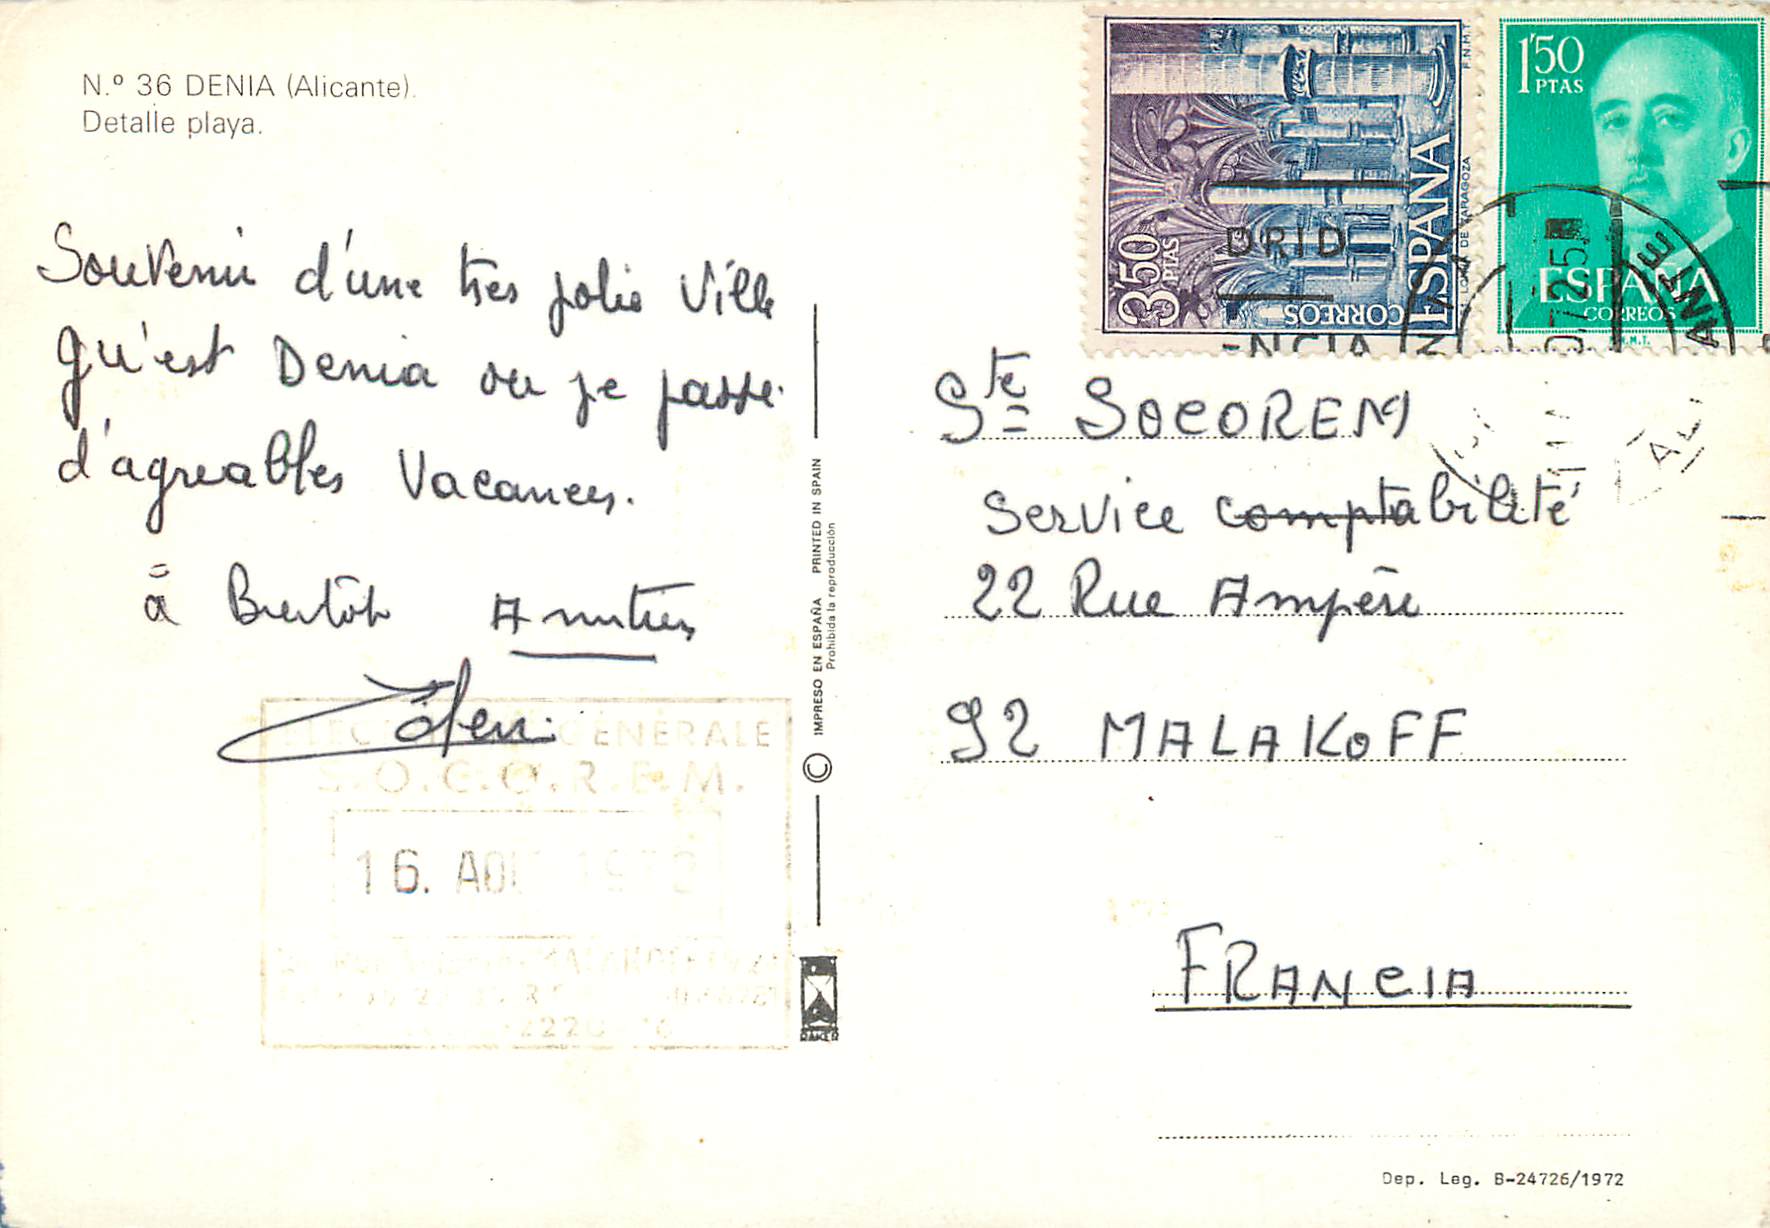 N.º 36 DENIA (Alicante).
Detalle playa.
Souvenir d'une tres jolie Ville
qu'est Denia ou je passe
d'agreables Vacances.
à Bientôt Amitiés
ELEC GÉNÉRALE
S.O.C.O.R.E.M.
16. AOU 1972
MALAKOFF
IMPRESO EN ESPAÑA PRINTED IN SPAIN
Prohibida la reproducción
©
RAKER
3'50 PTAS
CORREOS
ESPAÑA
LONJA DE ZARAGOZA
F.N.M.T.
1'50
PTAS
ESPAÑA
CORREOS
F.N.M.T.
DRID
ENCIA
Sté SOCOREM
Service comptabilité
22 Rue Ampère
92 MALAKOFF
FRANCIA
Dep. Leg. B-24726/1972